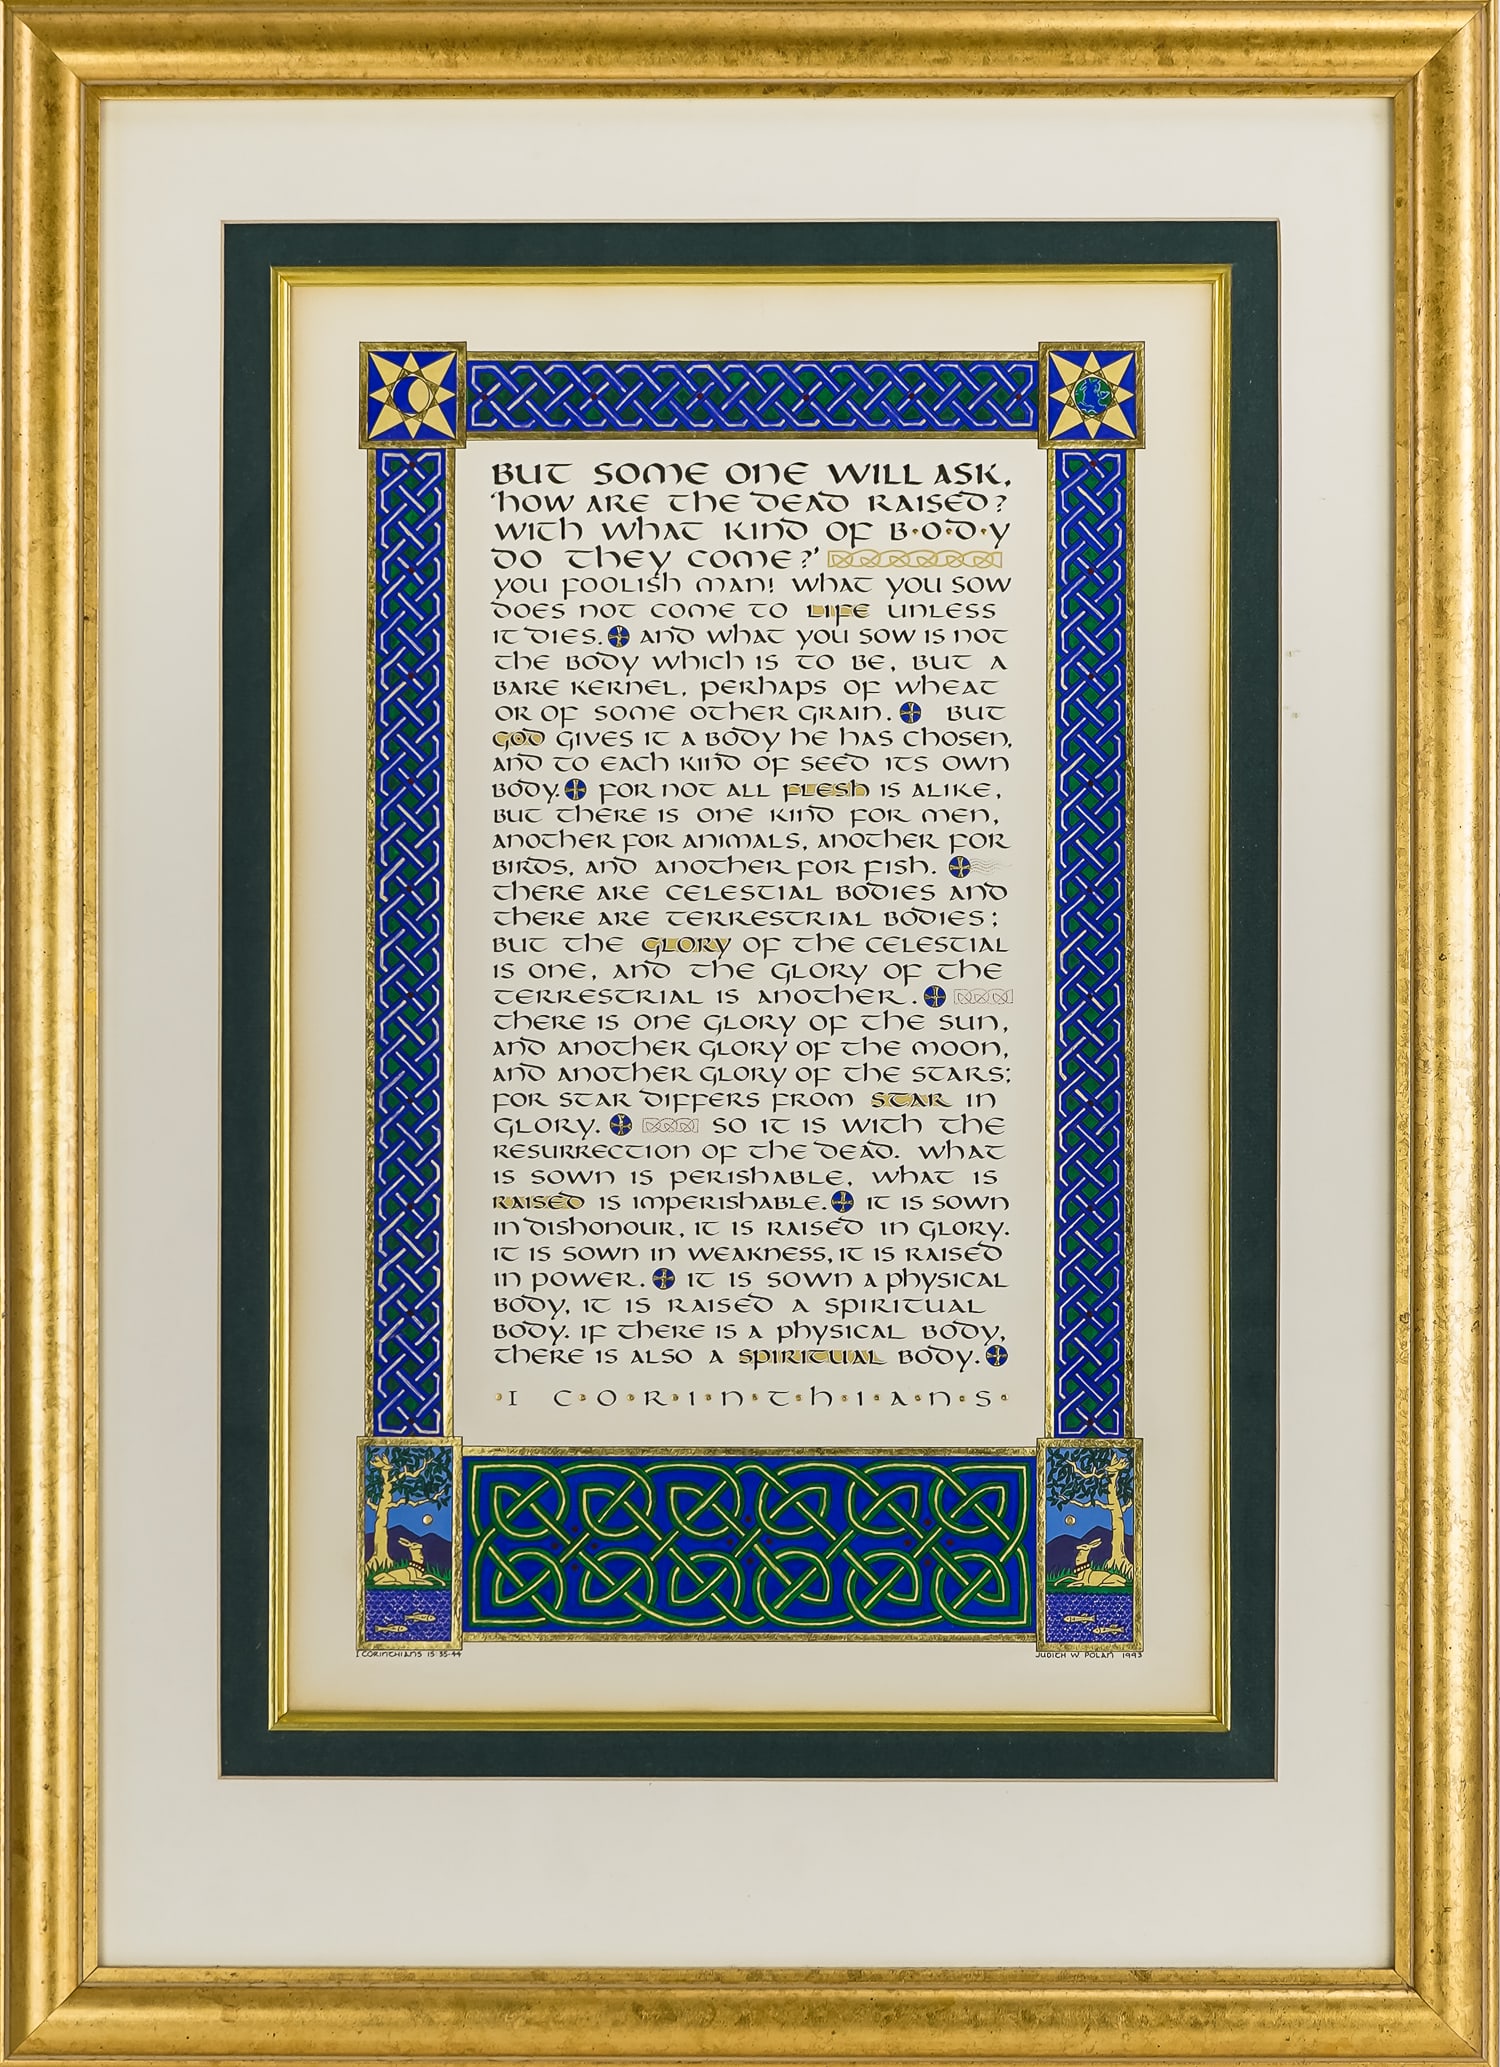 BUT SOME ONE WILL ASK,
'HOW ARE THE DEAD RAISED?
WITH WHAT KIND OF B·O·D·Y
DO THEY COME?'
YOU FOOLISH MAN! WHAT YOU SOW
DOES NOT COME TO LIFE UNLESS
IT DIES. AND WHAT YOU SOW IS NOT
THE BODY WHICH IS TO BE, BUT A
BARE KERNEL, PERHAPS OF WHEAT
OR OF SOME OTHER GRAIN. BUT
GOD GIVES IT A BODY HE HAS CHOSEN,
AND TO EACH KIND OF SEED ITS OWN
BODY. FOR NOT ALL FLESH IS ALIKE,
BUT THERE IS ONE KIND FOR MEN,
ANOTHER FOR ANIMALS, ANOTHER FOR
BIRDS, AND ANOTHER FOR FISH.
THERE ARE CELESTIAL BODIES AND
THERE ARE TERRESTRIAL BODIES;
BUT THE GLORY OF THE CELESTIAL
IS ONE, AND THE GLORY OF THE
TERRESTRIAL IS ANOTHER.
THERE IS ONE GLORY OF THE SUN,
AND ANOTHER GLORY OF THE MOON,
AND ANOTHER GLORY OF THE STARS;
FOR STAR DIFFERS FROM STAR IN
GLORY. SO IT IS WITH THE
RESURRECTION OF THE DEAD. WHAT
IS SOWN IS PERISHABLE, WHAT IS
RAISED IS IMPERISHABLE. IT IS SOWN
IN DISHONOUR, IT IS RAISED IN GLORY.
IT IS SOWN IN WEAKNESS, IT IS RAISED
IN POWER. IT IS SOWN A PHYSICAL
BODY, IT IS RAISED A SPIRITUAL
BODY. IF THERE IS A PHYSICAL BODY,
THERE IS ALSO A SPIRITUAL BODY.
·I C·O·R·I·N·T·H·I·A·N·S·
I CORINTHIANS 15:35-44
JUDITH W. POLAN 1993